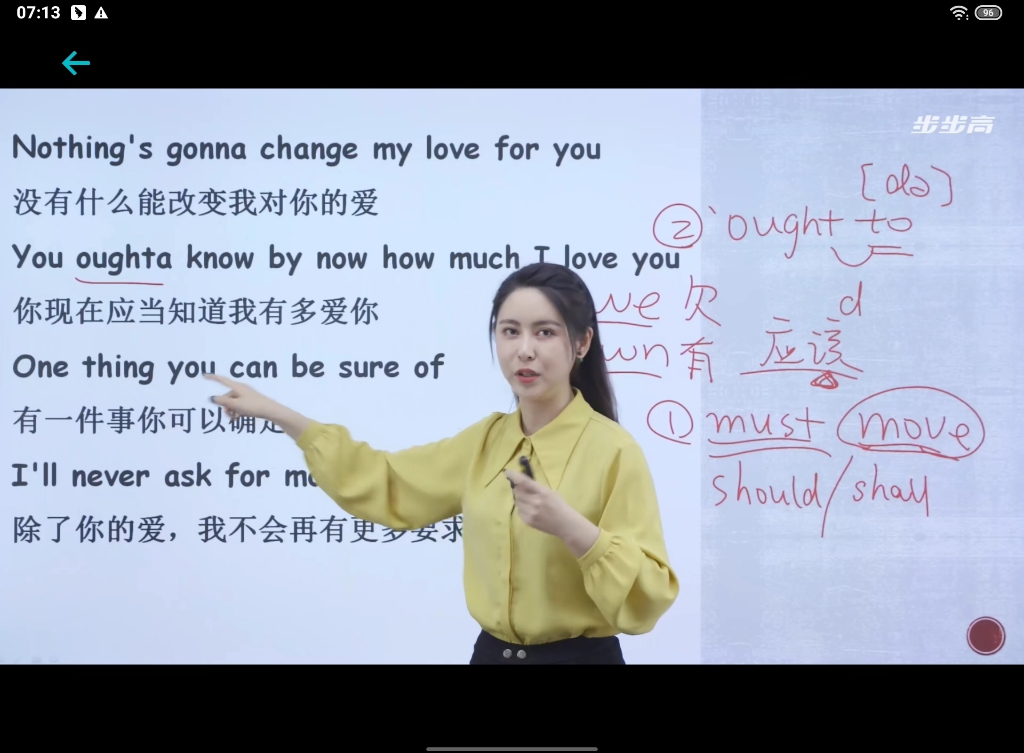 07:13
96
步步高
Nothing's gonna change my love for you
没有什么能改变我对你的爱
You oughta know by now how much I love you
你现在应当知道我有多爱你
One thing you can be sure of
有一件事你可以确定
I'll never ask for
除了你的爱，我不会再有更多要求
[də]
② ought to
欠 d
有 应该
① must move
should/shall